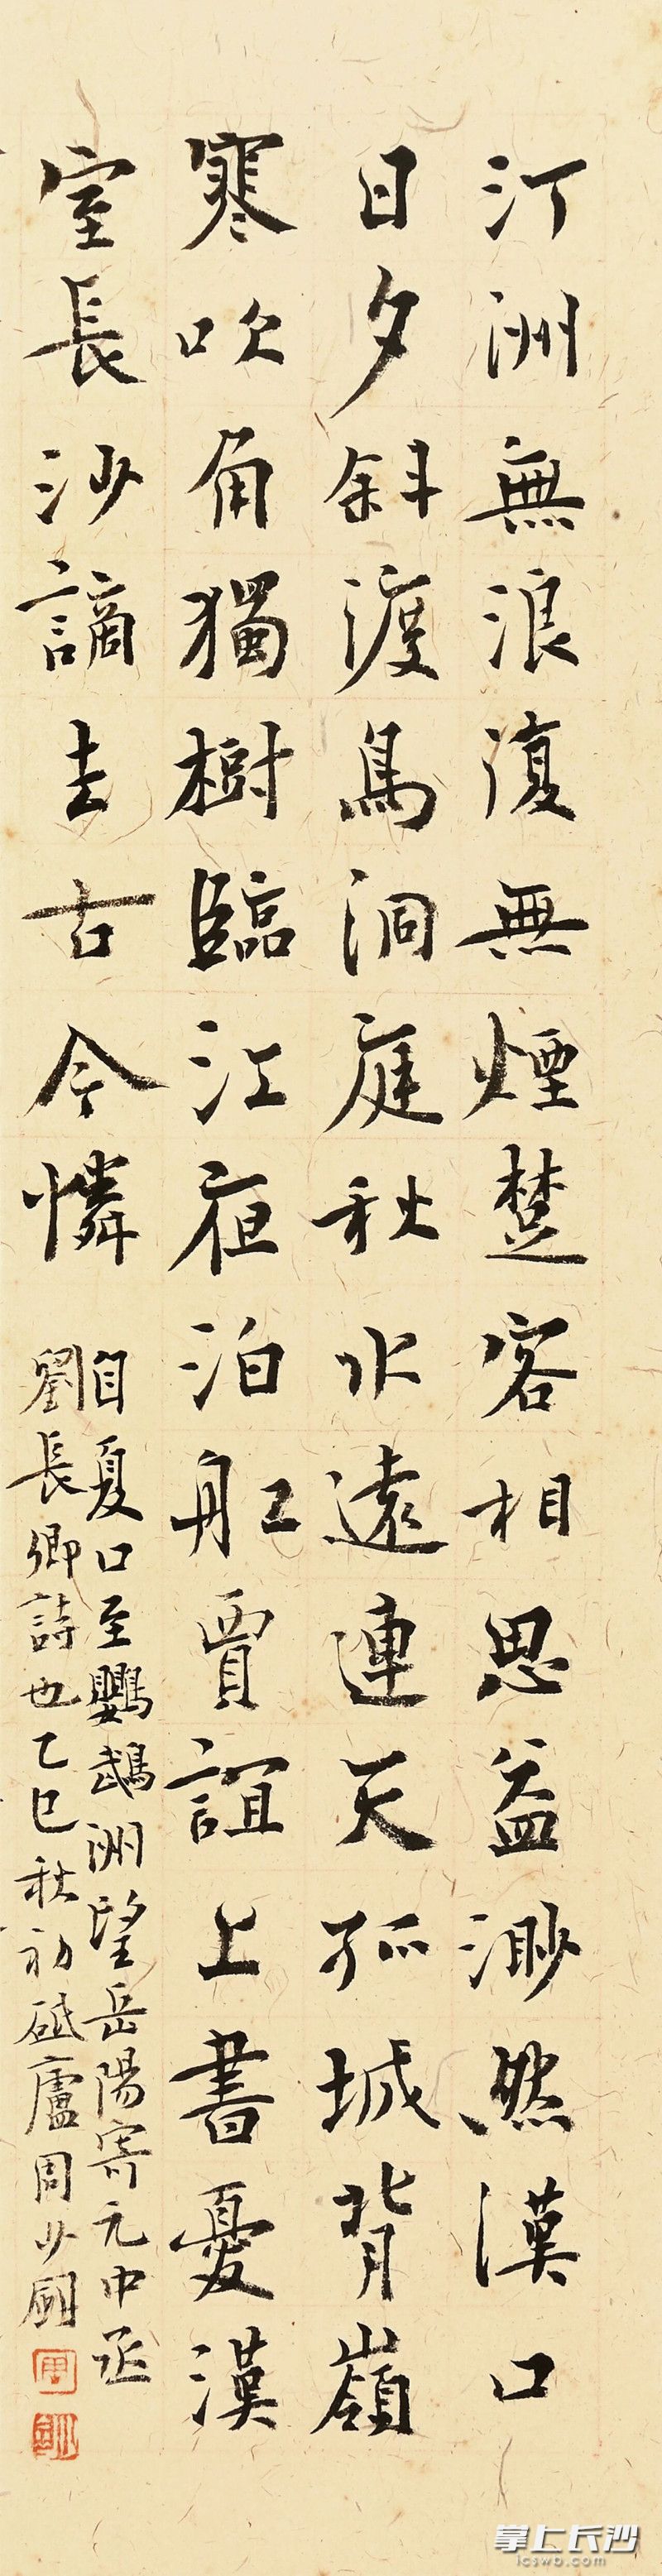 汀洲無浪復無煙楚客相思益渺然漢口
日夕斜渡鳥洞庭秋水遠連天孤城背嶺
寒吹角獨樹臨江夜泊船賈誼上書憂漢
室長沙謫去古今憐
自夏口至鸚鵡洲望岳陽寄元中丞
劉長卿詩也乙巳秋初砥廬周少
掌上长沙
icswb.com